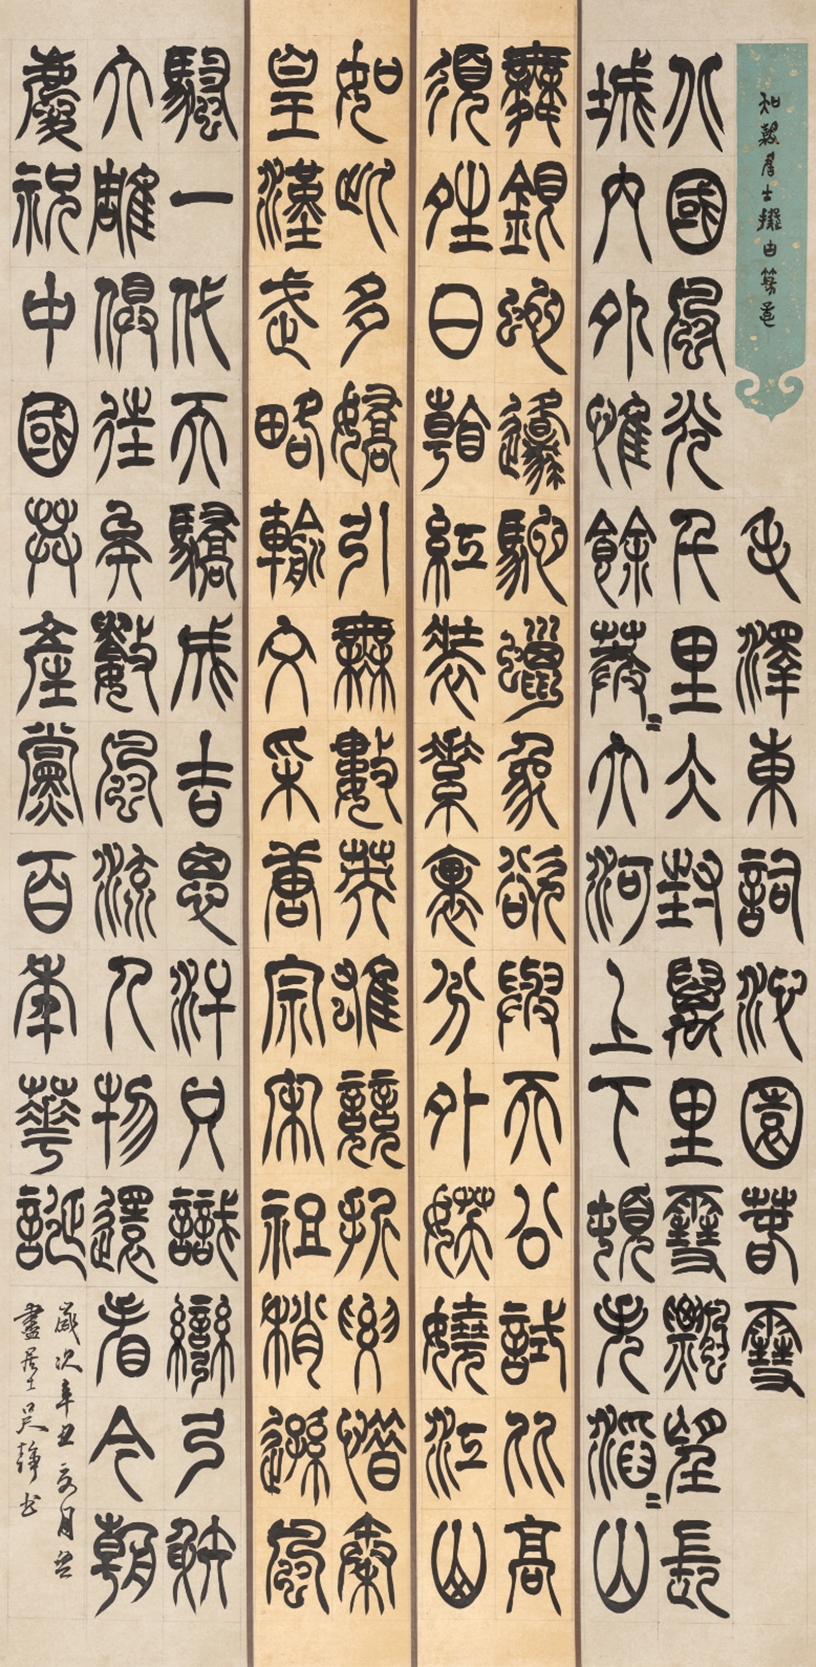 知居士擬由篆
毛澤東詞沁園春雪
北國風光千里冰封萬里雪飄望長
城內外惟餘莽〻大河上下頓失滔〻山
舞銀蛇邍馳蠟象欲與天公試比高
須夝日看紅裝素裹分外妖嬈江山
如此多嬌引無數英雄競折腰惜秦
皇漢武略輸文采唐宗宋祖稍遜風
騷一代天驕成吉思汗只識彎弓射
大雕俱往矣數風流人物還看今朝
慶祝中國共產黨百年華誕
歲次辛丑月
畫居士吳靜書